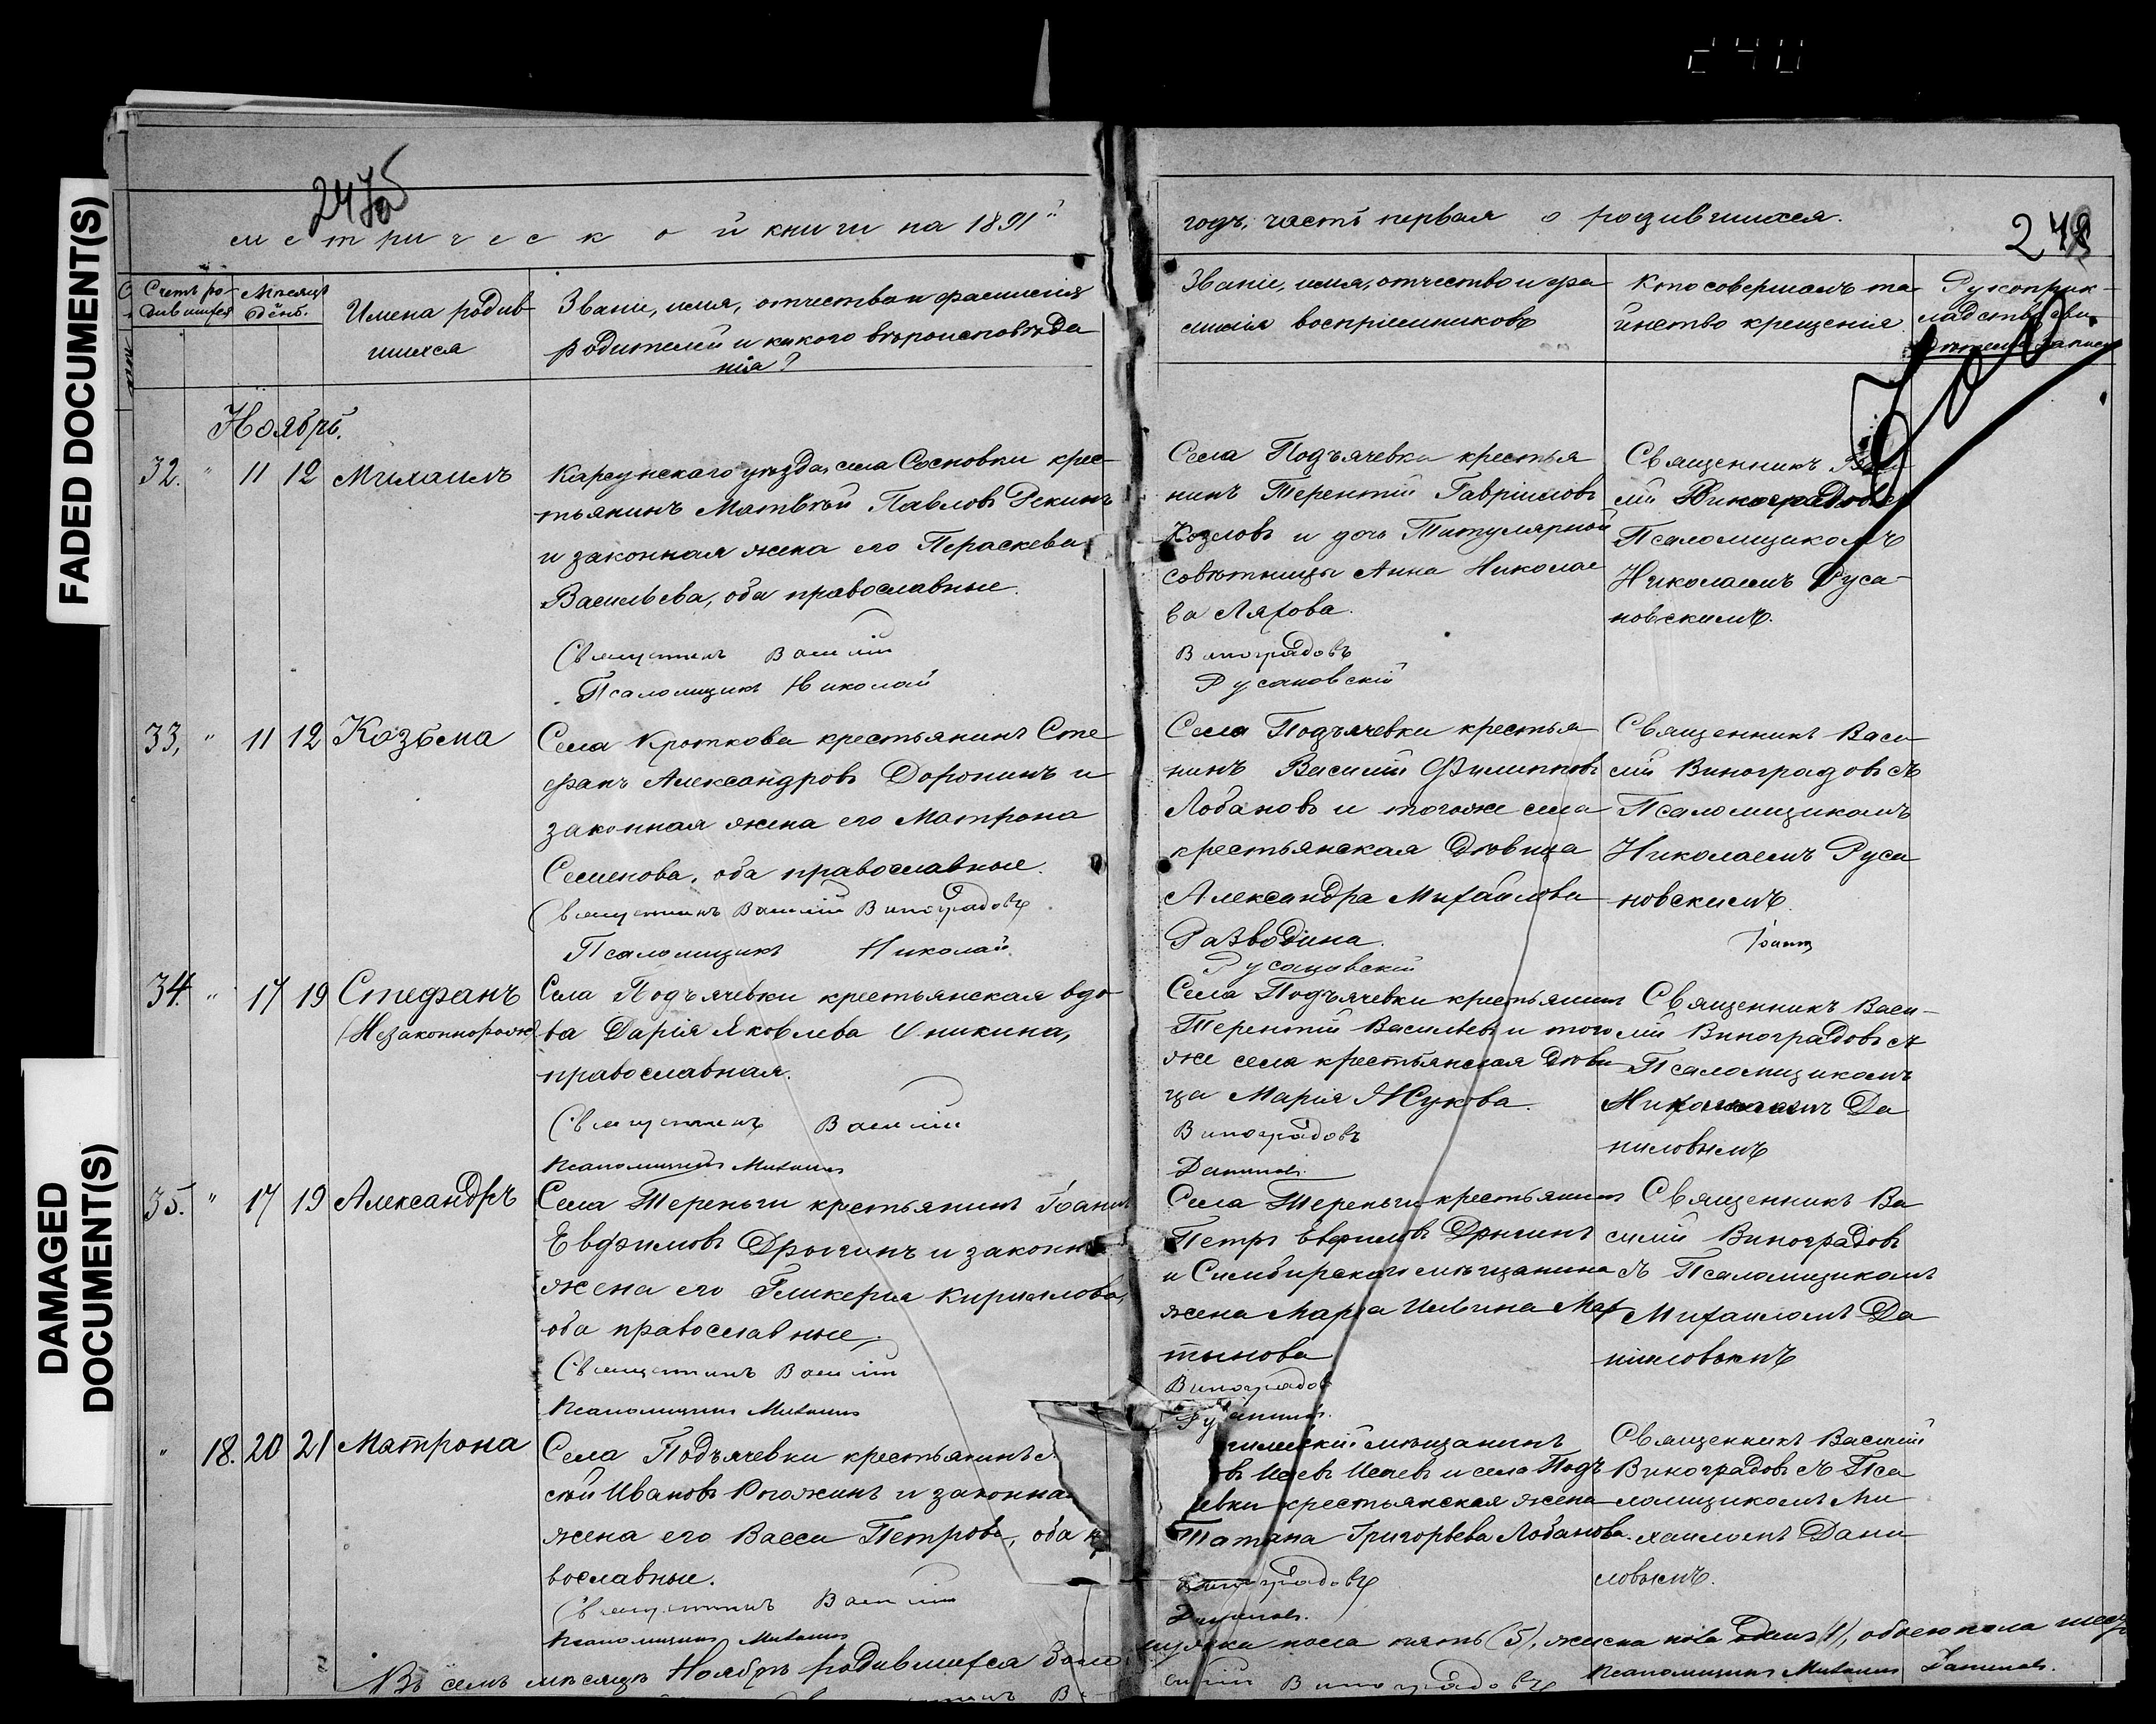 FADED DOCUMENT(S)
DAMAGED
DOCUMENT(S)
240
247об
метрической книги на 1891й
годъ, часть первая о родившихся.
248
Счетъ ро-
дившихся
Мѣсяцъ
и день.
Имена родив
шихся
Званіе, имя, отчество и фамилія
родителей и какого вѣроисповѣда
нія?
Званіе, имя, отчество и фа
милія воспріемниковъ
Кто совершалъ та
инство крещенія
Рукоприк-
ладство сви-
дѣтелей записи
Ноябрь.
32. " 11 12 Михаилъ
Карсунскаго уѣзда, села Сосновки крес-
тьянинъ Матвѣй Павловъ Рекинъ
и законная жена его Параскева
Васильева, оба православные.
Священникъ Василій
Псаломщикъ Николай
Села Подъячевки крестья
нинъ Терентій Гавріиловъ
Козловъ и дочь Титулярной
совѣтницы Анна Николае
ва Ляхова.
Виноградовъ
Русановскій
Священникъ Васи-
лій Виноградовъ съ
Псаломщикомъ
Николаемъ Руса-
новскимъ.
33, " 11 12 Козьма
Села Кроткова крестьянинъ Сте
фанъ Александровъ Доронинъ и
законная жена его Матрона
Семенова, оба православные.
Священникъ Василій Виноградовъ
Псаломщикъ Николай
Села Подъячевки крестья
нинъ Василій Филипповъ
Лобановъ и тогоже села
крестьянская дѣвица
Александра Михайлова
Разводина.
Русановскій
Священникъ Васи
лій Виноградовъ съ
Псаломщикомъ
Николаемъ Руса
новскимъ.
34. " 17 19 Стефанъ
(Незаконнорожд.)
Села Подъячевки крестьянская вдо-
ва Дарія Яковлева Аникина,
православная.
Священникъ Василій
Псаломщикъ Михаилъ
Села Подъячевки крестьянинъ
Терентій Васильевъ и того
же села крестьянская дѣви
ца Марія Жукова.
Виноградовъ
Даниловъ.
Священникъ Васи-
лій Виноградовъ съ
Псаломщикомъ
Да
ниловымъ
35. " 17 19 Александръ
Села Тереньги крестьянинъ Іоаннъ
Евфимовъ Дрыгинъ и законн
жена его Гликерія Кириллова,
оба православные.
Священникъ Василій
Псаломщикъ Михаилъ
Села Тереньги крестьянинъ
Петръ Евфимовъ Дрыгинъ
и Симбирскаго мѣщанина
жена Марѳа Ильина Мар
тынова
Виноградовъ
Священникъ Ва
силій Виноградовъ
съ Псаломщикомъ
Михаиломъ Да
ниловымъ
" 18. 20 21 Матрона
Села Подъячевки крестьянинъ
сѣй Ивановъ Рогожинъ и законная
жена его Васса Петрова, оба
вославные.
Священникъ Василій
Псаломщикъ Михаилъ
мѣщанинъ
Исаевъ и села Подъ
евки крестьянская жена
Татіана Григорьева Лобанова.
Виноградовъ
Даниловъ.
Священникъ Василій
Виноградовъ съ Пса
ломщикомъ Ми
хаиломъ Дани
ловымъ.
Въ семъ мѣсяцѣ Ноябрѣ родившихся было
мужска пола пять (5), женска пола одинъ (1), обоего пола шесть
Виноградовъ
Псаломщикъ Михаилъ Даниловъ.